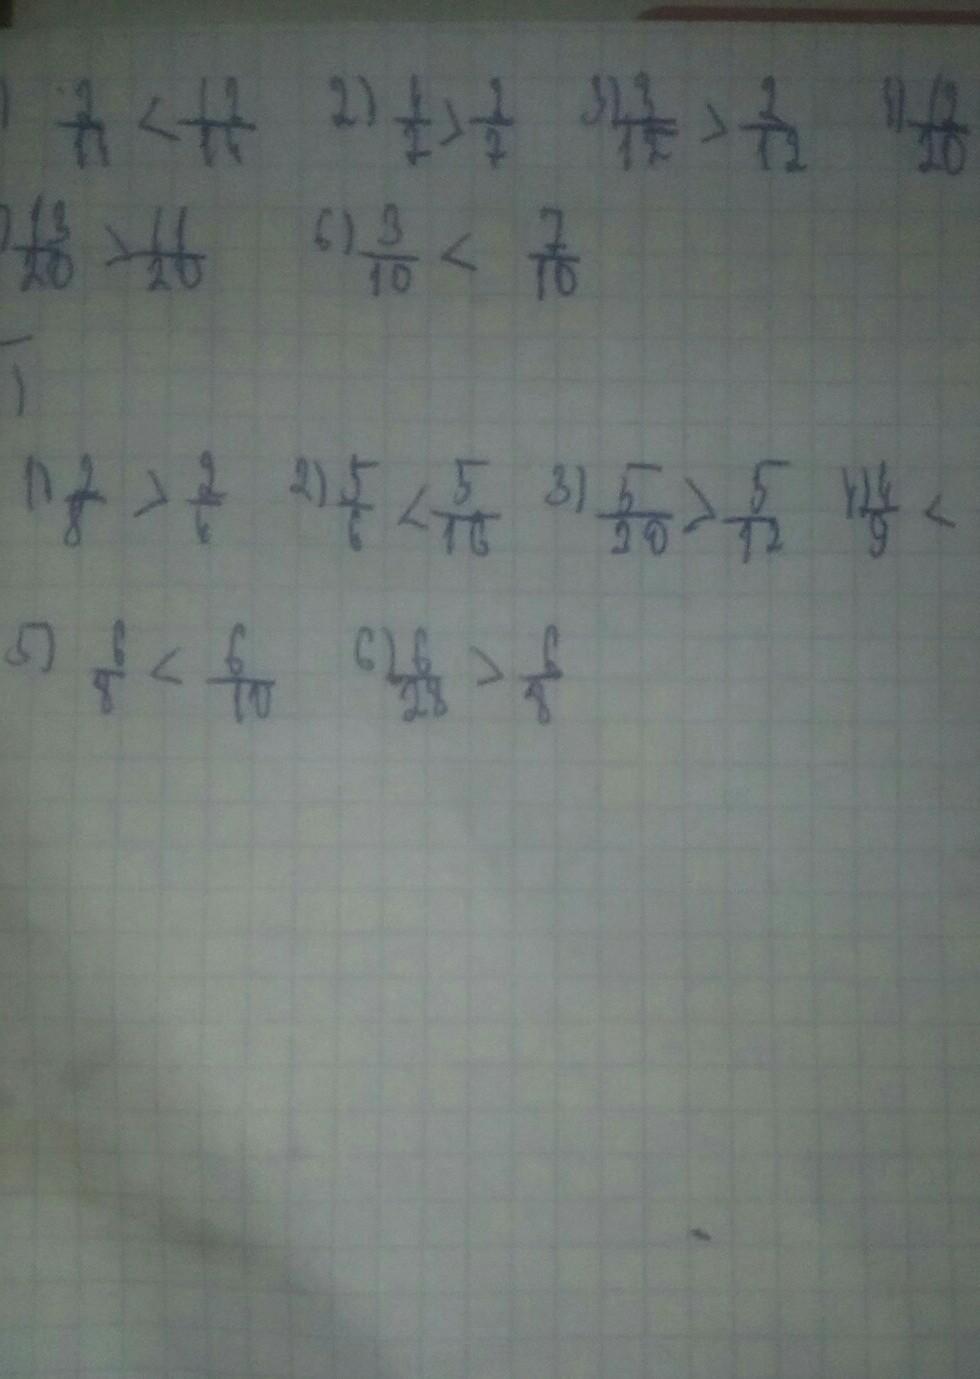 2/11 < 12/11 2) 4/7 > 2/7 3) 3/12 > 2/12 4) 12/20
13/20 > 11/20 6) 3/10 < 7/10
1) 2/8 > 2/6 2) 5/6 < 5/16 3) 5/20 > 5/12 4) 4/9 <
5) 6/8 < 6/10 6) 6/28 > 6/8